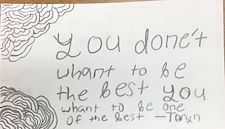 You done't
whant to be
the best you
whant to be one
of the best